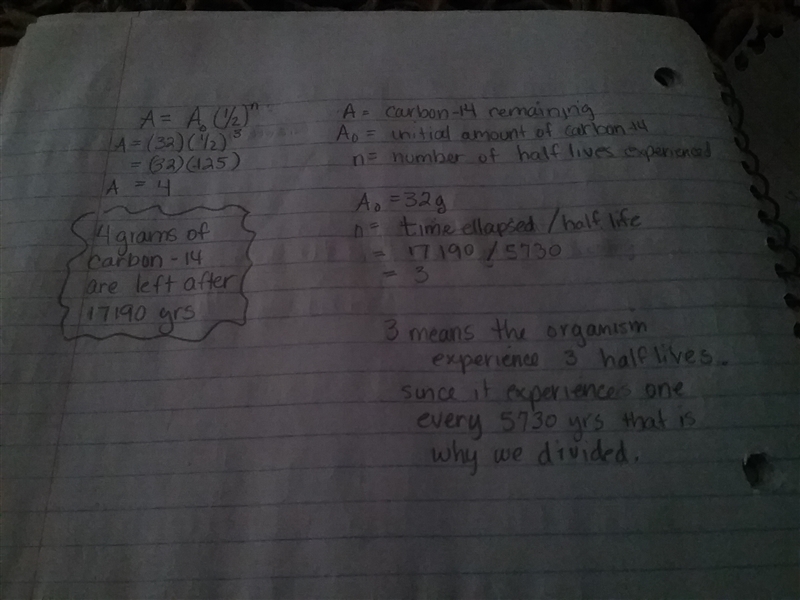 A = A₀ (1/2)ⁿ
A = (32)(1/2)³
= (32)(.125)
A = 4
4 grams of
carbon-14
are left after
17190 yrs
A = carbon-14 remaining
A₀ = initial amount of carbon-14
n = number of half lives experienced
A₀ = 32g
n = time ellapsed / half life
= 17190 / 5730
= 3
3 means the organism
experience 3 half lives.
since it experiences one
every 5730 yrs that is
why we divided.